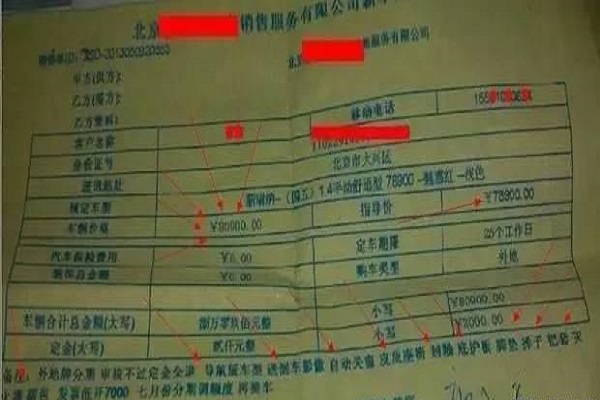 北京 销售服务有限公司新车
北京 服务有限公司
甲方(供方):
乙方(需方):
乙方资料:
客户名称 移动电话
身份证号
通讯地址 北京市大兴区
预定车型 (国五) 1.4手动舒适型 78900 -魅惑红 -浅色
车辆价格 ¥80900.00 指导价 ¥78900.00
汽车保险费用 ¥0.00 定车期限 25个工作日
装饰总金额 ¥0.00 购车类型 外地
车辆合计总金额(大写) 捌万零玖佰元整 小写 ¥80900.00
定金(大写) 贰仟元整 小写 ¥2000.00
备注: 外地牌分期 审核不过定金全退 导航版车型 送倒车影像 自动关窗 皮质座椅 封釉 底护板 脚垫 掸子 把套 灭
火器 发票低开7000 七月份分期调额度 再提车